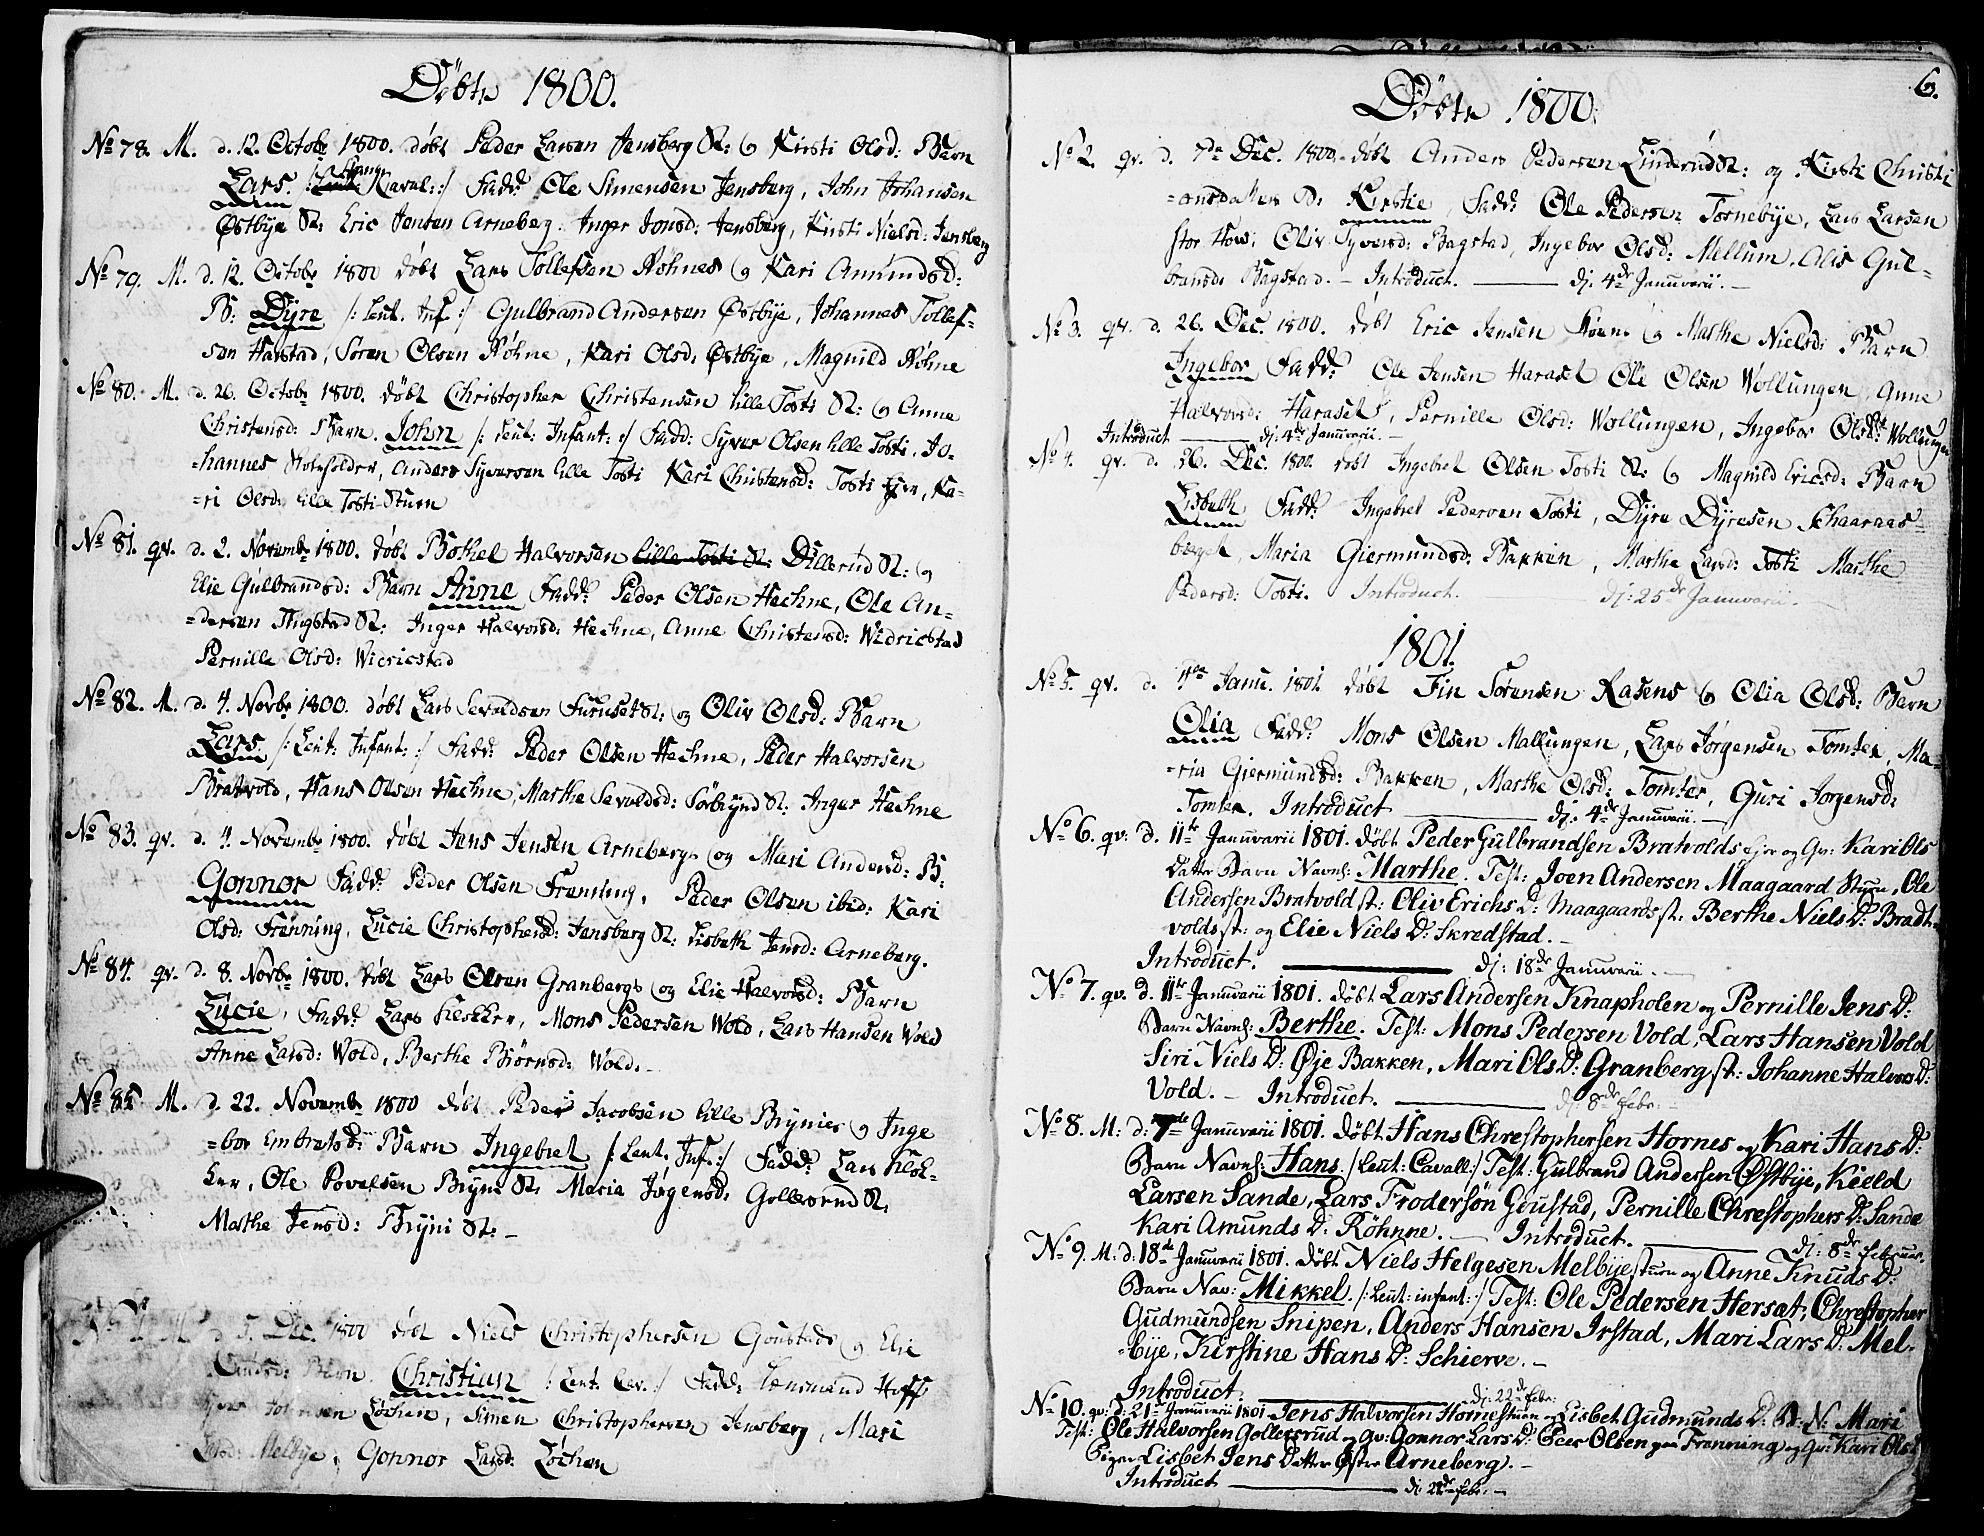 Döbte 1800.
No 78. M. d. 12. Octobr 1800. döbt Peder Larsen Jensberg St: og Kirsti Olsd: Barn
Lars. Caval:/ Fadd: Ole Simensen Jensberg, John Johansen
Østbÿe St: Eric Jensen Arneberg. Inger Jonsd: Jensberg, Kirsti Nielsd: Jensberg
No 79. M. d. 12. Octobr 1800 döbt Lars Tollefsen Röhnes og Kari Amundsd:
B: Dÿre /: Leut. Inf :/ Gulbrand Andersen Østbÿe, Johannes Tollef-
sen Harstad, Soren Olsen Röhne, Kari Olsd: Østbÿe, Magnild Röhne
No 80. M. d. 26. Octobr 1800. döbt Christopher Christensen lille Tosti St: og Anne
Christensd: Barn. John /: Leut: Infant: :/ Fadd: Syver Olsen lille Tosti, Jo-
=hannes, Anders Syversen lille Tosti Kari Christensd: Tosti Ejer, Ka-
=ri Olsd: lille Tosti-Stuen
No 81. qv. d. 2. Novembr 1800. döbt Bottel Halvorsen lille Tosti St: Dillerud St: og
Elie Gulbrandsd: Barn Anne Fadd: Peder Olsen Hechne, Ole An-
=dersen Ringstad St: Inger Halvorsd: Hechne, Anne Christensd: Widricstad
Pernille Olsd: Widricstad
No 82. M. d. 4. Novbr 1800. döbt Lars Sevaldsen Furuset St: og Oliv Olsd: Barn
Lars. /: Leut: Infant: :/ Fadd: Peder Olsen Hechne, Peder Halvorsen
Bratvold, Hans Olsen Hechne, Marthe Sevaldsd: Sörbrÿnd St: Inger Hechne
No 83. qv. d. 4. Novembr 1800. döbt Jens Jensen Arnebergs og Mari Andersd: B:
Gonnor Fadd: Peder Olsen Frenning, Peder Olsen ibid: Kari
Olsd: Frenning, Lucie Christophersd: Jensberg St: Lisbeth Jensd: Arneberg.
No 84. qv. d. 8. Novbr 1800. döbt Lars Olsen Granbergs og Elie Halvorsd: Barn
Lucie, Fadd: Lars, Mons Pedersen Wold, Lars Hansen Wold
Anne Larsd: Wold, Berthe Björnsd: Wold. –
No 85 M. d. 22. Novembr 1800 döbt Peder Jacobsen lille Brÿnies og Inge
=bor Embretsd: Barn Ingebret /: Leut. Inf. :/ Fadd: Lars
, Ole Povelsen Brÿni St: Maria Jörgensd: Gollerrud St.
Marthe Jensd: Brÿni St: –
No 1. M d 5. Dec. 1800 döbt Niels Christophersen Goustads og Elie
Barn. Christian /: Leut. Cav. :/ Fadd: Lensmand Hoff
Löchen, Simen Christophersen Jensberg, Mari
Melbÿe, Gonnor Larsd: Löchen
6.
Döbte 1800.
No 2. qv. d. 7de Dec. 1800. döbt Anders Pedersen Linderud St: og Kirsti Christi
=ansdatter B: Kirstie, Fadd: Ole Pedersen Tornebÿe, Lars Larsen
stor How, Oliv Syversd: Bagstad, Ingebor Olsd: Mellum, Alis Gul-
bransd: Bagstad. – Introduct. — dj. 4de Januarii. –
No 3. qv. d. 26. Dec. 1800. döbt Eric Jensen og Marthe Nielsd: Barn
Ingebor Fadd: Ole Jensen Haraset Ole Olsen Wollungen, Anne
Halvorsd: Haraset, Pernille Olsd: Wollungen, Ingebor Olsd: Wollungen
Introduct — dj. 4de Januarii. –
No 4. qv. d. 26. Dec. 1800. döbt Ingebret Olsen Tosti St: og Magnild Ericsd: Barn
Lisbeth Fadd: Ingebret Pedersen Tosti, Dÿre Dÿresen Schaaraas-
berget, Maria Giermundsd: Bakken, Marthe Larsd: Tosti Marthe
Pedersd: Tosti. Introduct. — dj: 25de Januarii. –
1801.
No 5. qv. d. 4de Janu. 1801 döbt Fin Sörensen Rasens og Olia Olsd: Barn
Olia Fadd: Mons Olsen Mallungen, Lars Jörgensen Tomter, Ma-
=ria Giermundsd: Bakken, Marthe Olsd: Tomter, Guri Jorgensd:
Tomter. Introduct — dj: 4de Januarii. –
No 6. qv: d. 11te Januarii 1801. döbt Peder Gulbrandsen Bratvolds Ejer og Qv: Kari Ols
Datter Barn Navnl: Marthe. Test: Joen Andersen Maagaard Stuen, Ole
Andersen Bratvold st: Oliv Erichs D: Maagaards st: Berthe Niels D: Bradt-
volds st: og Elie Niels D: Skredstad. –
Introduct. — dj: 18de Januarii. –
No 7. qv. d. 11te Januarii 1801. döbt Lars Andersen Knapholen og Pernille Jens D:
Barn Navnl: Berthe. Test: Mons Pedersen Vold, Lars Hansen Vold
Siri Niels D: Øje Bakken, Mari Ols D: Granberg st: Johanne Halvors D:
Vold. – Introduct. — dj: 8de Febr: –
No 8. M: d: 7de Januarii 1801. döbt Hans Chrestophersen Hornes og Kari Hans D:
Barn Navnl: Hans. /: Leut: Cavall: :/ Test: Gulbrand Andersen Østbÿe, Kield
Larsen Sande, Lars Frodersön Goustad, Pernille Chrestophers D: Sande
Kari Amunds D: Röhnne. – Introduct. — dj: 8de Februar.
No 9. M: d: 18de Januarii 1801. döbt Niels Helgesen Melbÿe stuen og Anne Knuds D:
Barn Nav: Mikkel. /: Leut: infant: :/ Test: Ole Pedersen Hersæt, Chrestopher
Gudmundsen Snipen, Anders Hansen Irstad, Mari Lars D: Mel-
=bÿe, Kirstine Hans D: Schierve. –
Introduct. — dj: 22de Febr:
No 10. qv: d: 21de Januarii 1801. Jens Halvorsen Horne stuen og Lisbet Gudmunds D: B: N: Mari
Test: Ole Halvorsen Gollersrud og qv: Gonnor Lars D: Peer Olsen Frenning og Qv: Kari Ols D
Pigen Lisbet Jens Datter Østre Arneberg. –
Introduct — dj 22de Febr: –